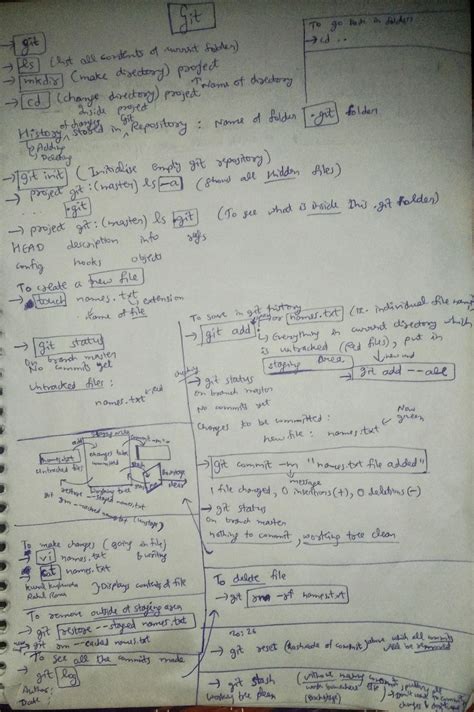 Git
→ git
→ ls (list all contents of current folder)
→ mkdir (make directory) project
→ Name of directory
→ cd (change directory) project
Inside project
To go back in folder
→ cd ..
History of changes stored in Git Repository : Name of folder .git folder
→ Adding
→ Deleting
→ git init (Initialise empty git repository)
→ project git:(master) ls -a (Shows all hidden files)
. .. .git
→ project git:(master) ls .git (To see what is inside this .git folder)
HEAD description info refs
config hooks objects
To create a new file
→ touch names.txt
→ extension
name of file
→ git status
On branch master
No commits yet
Untracked files :
names.txt → red
To save in git history
→ git add . or names.txt (i.e. individual file name)
→ Everything in current directory which
is untracked (red files), put in
staging Area
new mod
→ git add --all
→ git status
on branch master
No commits yet
Changes to be committed :
new file : names.txt
Now green
names.txt
Untracked files
changes to be committed
→ git commit -m "names.txt file added"
1 file changed, 0 insertions (+), 0 deletions (-)
→ git status
on branch master
nothing to commit, working tree clean
To make changes (going in file)
→ vi names.txt & writing
→ cat names.txt
Kunal Kushwaha
Rahul Rana
} Displays contents of file
To remove outside of staging area
→ git restore --staged names.txt
→ git rm --cached names.txt
To see all the commits made
→ git log
Author :
Date
To delete file
→ git rm -rf names.txt
20:26
→ git reset (Hashcode of commit) above which all commits will be removed
→ git stash
working tree clean
(without making commit, putting all work somewhere else)
(Backstage)
→ Don't want to commit changes